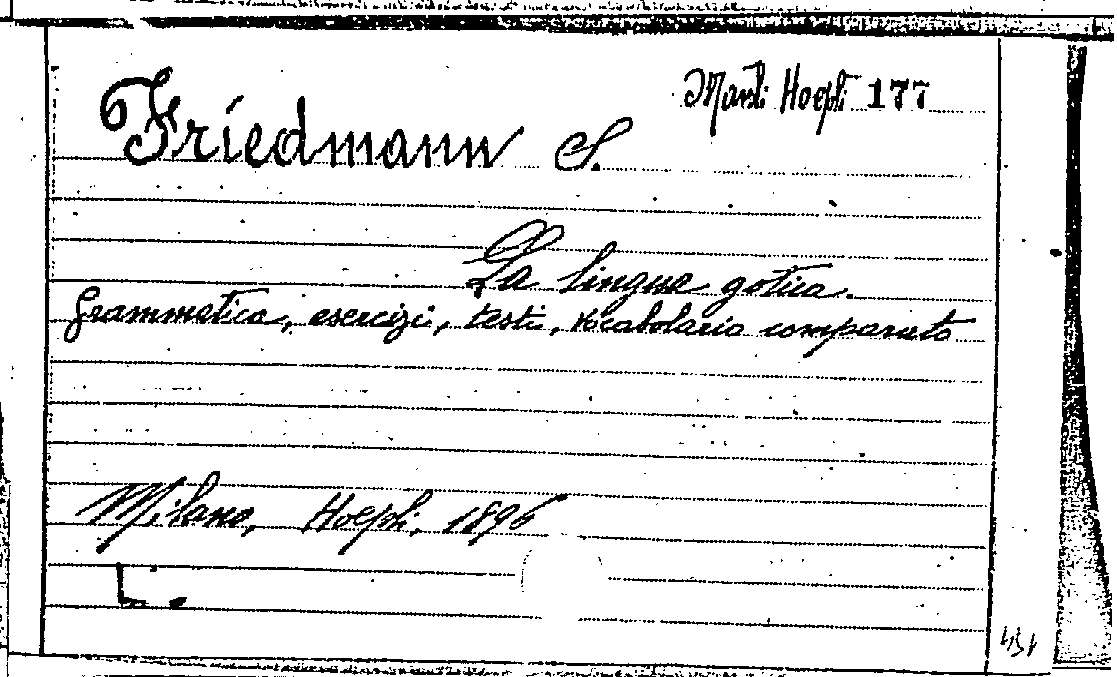 Manli Hoepli 177
Friedmann S.
La lingua gotica.
Grammatica, esercizi, testi, vocabolario comparato
Milano, Hoepli, 1896
L.